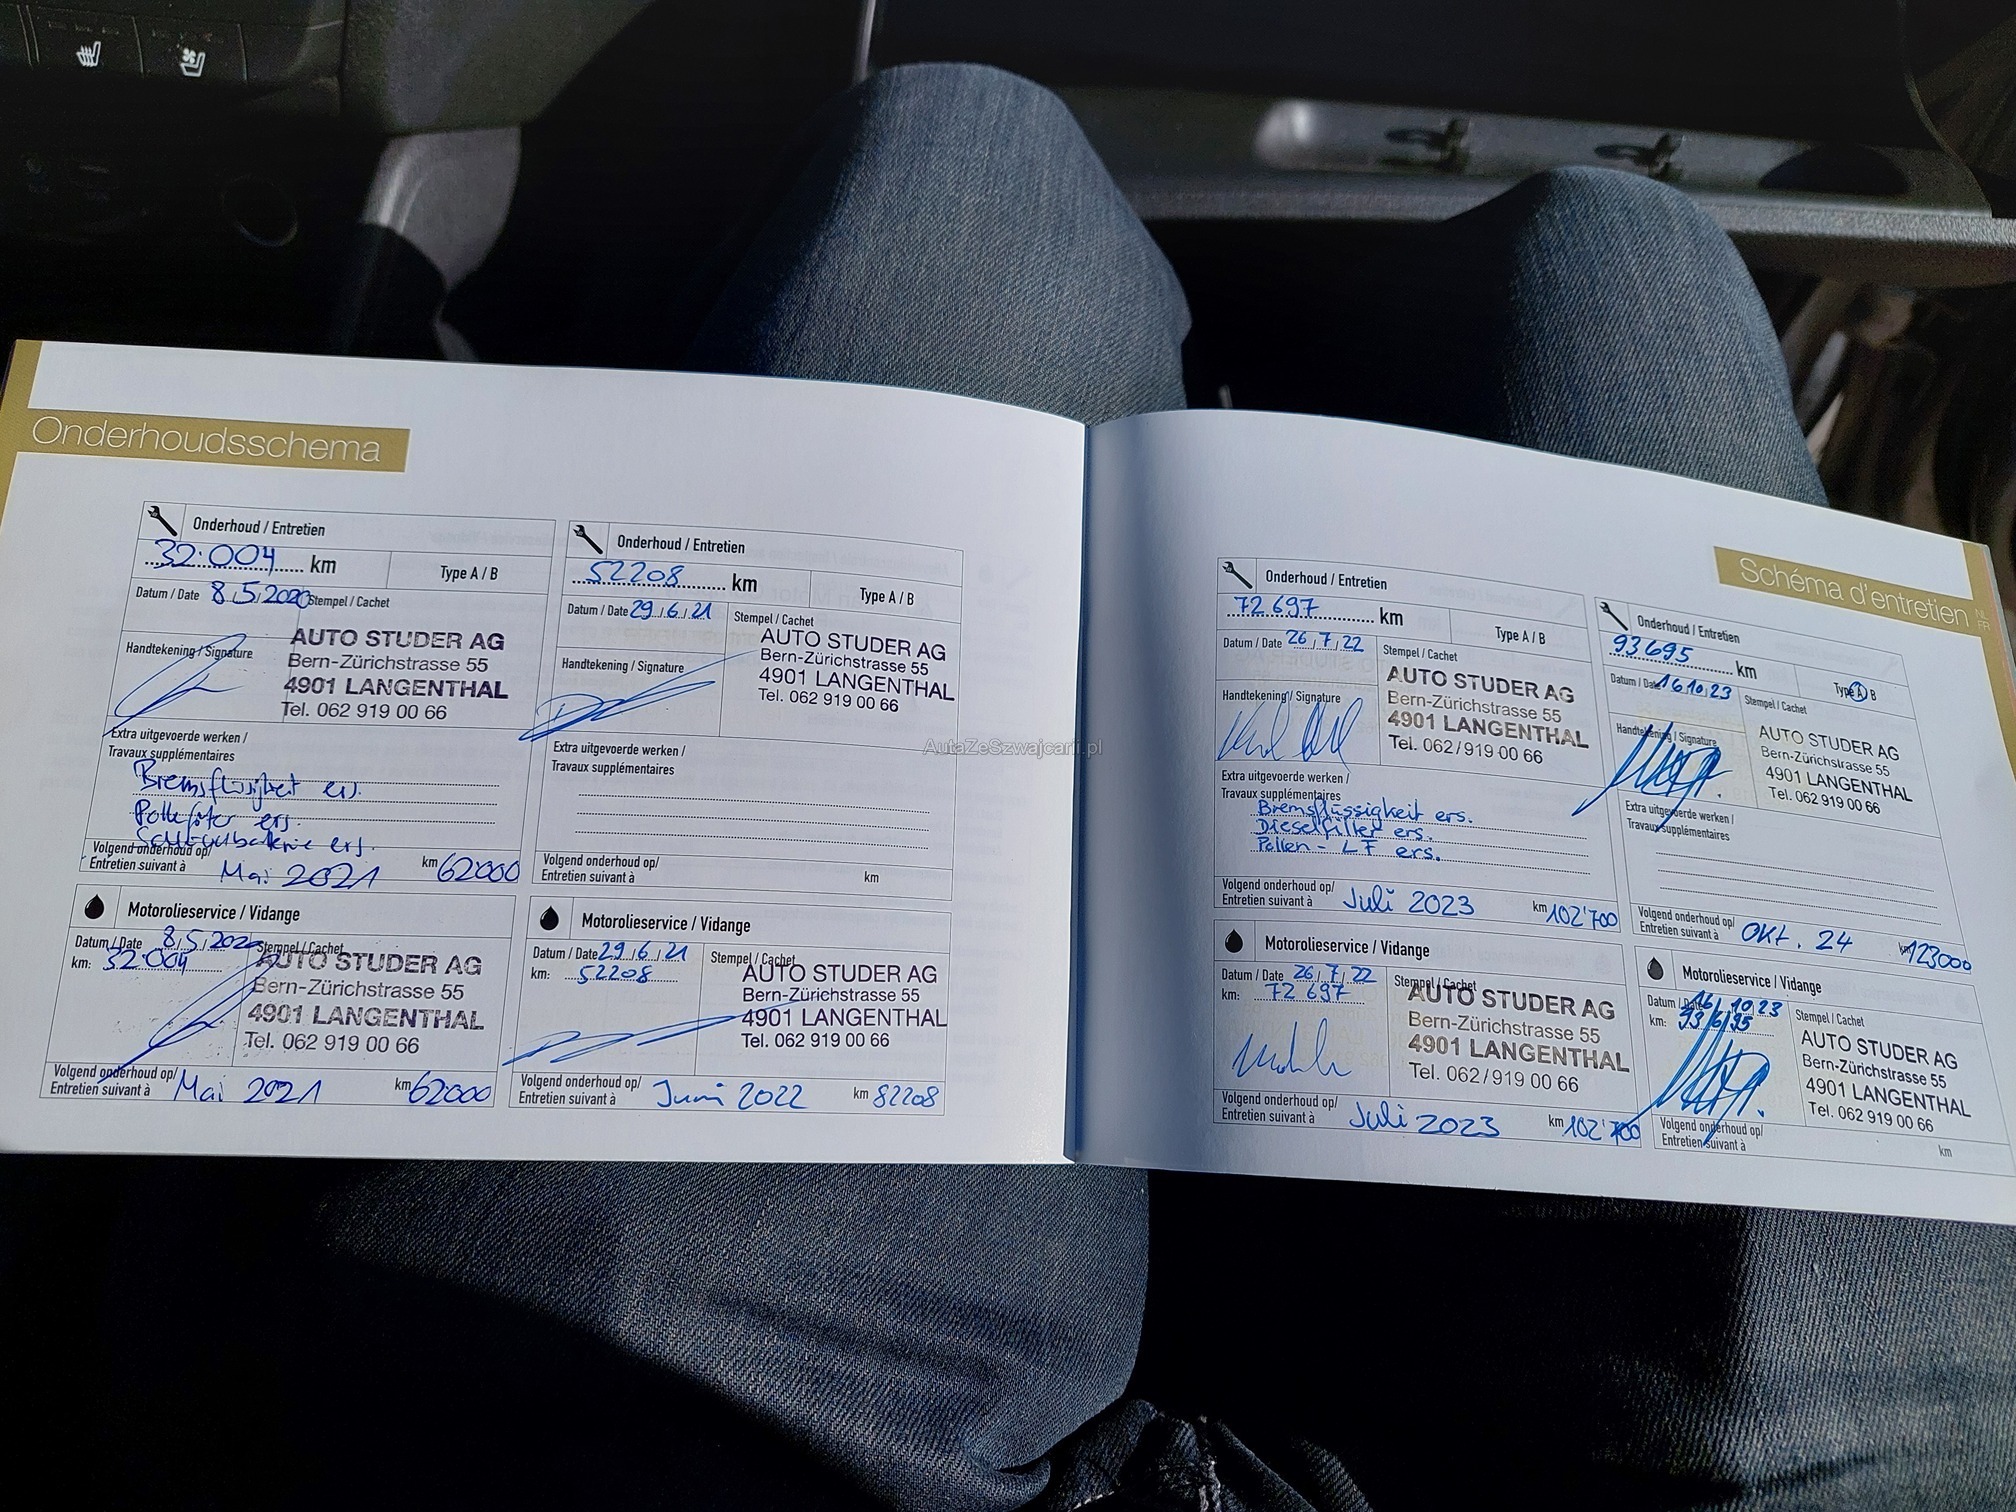 Onderhoudsschema
Onderhoud / Entretien
32.004 km
Type A / B
Datum / Date 8,5,2020
Stempel / Cachet
AUTO STUDER AG
Bern-Zürichstrasse 55
4901 LANGENTHAL
Tel. 062 919 00 66
Handtekening / Signature
Extra uitgevoerde werken /
Travaux supplémentaires
Bremsflüssigkeit ers.
ers.
ers.
Volgend onderhoud op/
Entretien suivant à Mai 2021 km 62'000
Motorolieservice / Vidange
Datum / Date 8,5,2020
Stempel / Cachet
km: 32.004
AUTO STUDER AG
Bern-Zürichstrasse 55
4901 LANGENTHAL
Tel. 062 919 00 66
Volgend onderhoud op/
Entretien suivant à Mai 2021 km 62'000
Onderhoud / Entretien
52208 km
Type A / B
Datum / Date 29,6,21
Stempel / Cachet
AUTO STUDER AG
Bern-Zürichstrasse 55
4901 LANGENTHAL
Tel. 062 919 00 66
Handtekening / Signature
Extra uitgevoerde werken /
Travaux supplémentaires
Volgend onderhoud op/
Entretien suivant à km
Motorolieservice / Vidange
Datum / Date 29,6,21
Stempel / Cachet
km: 52208
AUTO STUDER AG
Bern-Zürichstrasse 55
4901 LANGENTHAL
Tel. 062 919 00 66
Volgend onderhoud op/
Entretien suivant à Juni 2022 km 82208
AutaZeSzwajcarii.pl
Schéma d'entretien
NL
FR
Onderhoud / Entretien
72 697 km
Type A / B
Datum / Date 26,7,22
Stempel / Cachet
AUTO STUDER AG
Bern-Zürichstrasse 55
4901 LANGENTHAL
Tel. 062/919 00 66
Handtekening / Signature
Extra uitgevoerde werken /
Travaux supplémentaires
Bremsflüssigkeit ers.
Dieselfilter ers.
Pollen - LF ers.
Volgend onderhoud op/
Entretien suivant à Juli 2023 km 102'700
Motorolieservice / Vidange
Datum / Date 26,7,22
Stempel / Cachet
km: 72 697
AUTO STUDER AG
Bern-Zürichstrasse 55
4901 LANGENTHAL
Tel. 062/919 00 66
Volgend onderhoud op/
Entretien suivant à Juli 2023 km 102'700
Onderhoud / Entretien
93695 km
Type A / B
Datum / Date 16,10,23
Stempel / Cachet
AUTO STUDER AG
Bern-Zürichstrasse 55
4901 LANGENTHAL
Tel. 062 919 00 66
Handtekening / Signature
Extra uitgevoerde werken /
Travaux supplémentaires
Volgend onderhoud op/
Entretien suivant à Okt. 24 km 123000
Motorolieservice / Vidange
Datum / Date 16,10,23
Stempel / Cachet
km: 93695
AUTO STUDER AG
Bern-Zürichstrasse 55
4901 LANGENTHAL
Tel. 062 919 00 66
Volgend onderhoud op/
Entretien suivant à km